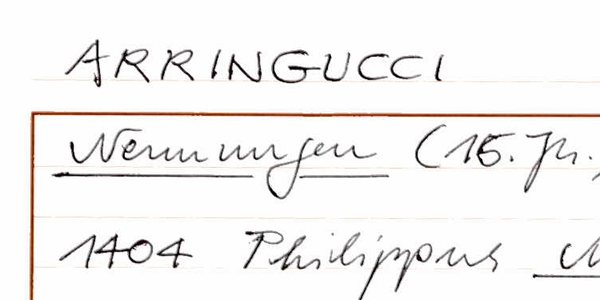 ARRINGUCCI
Nennungen (15. Jh.
1404 Philippus